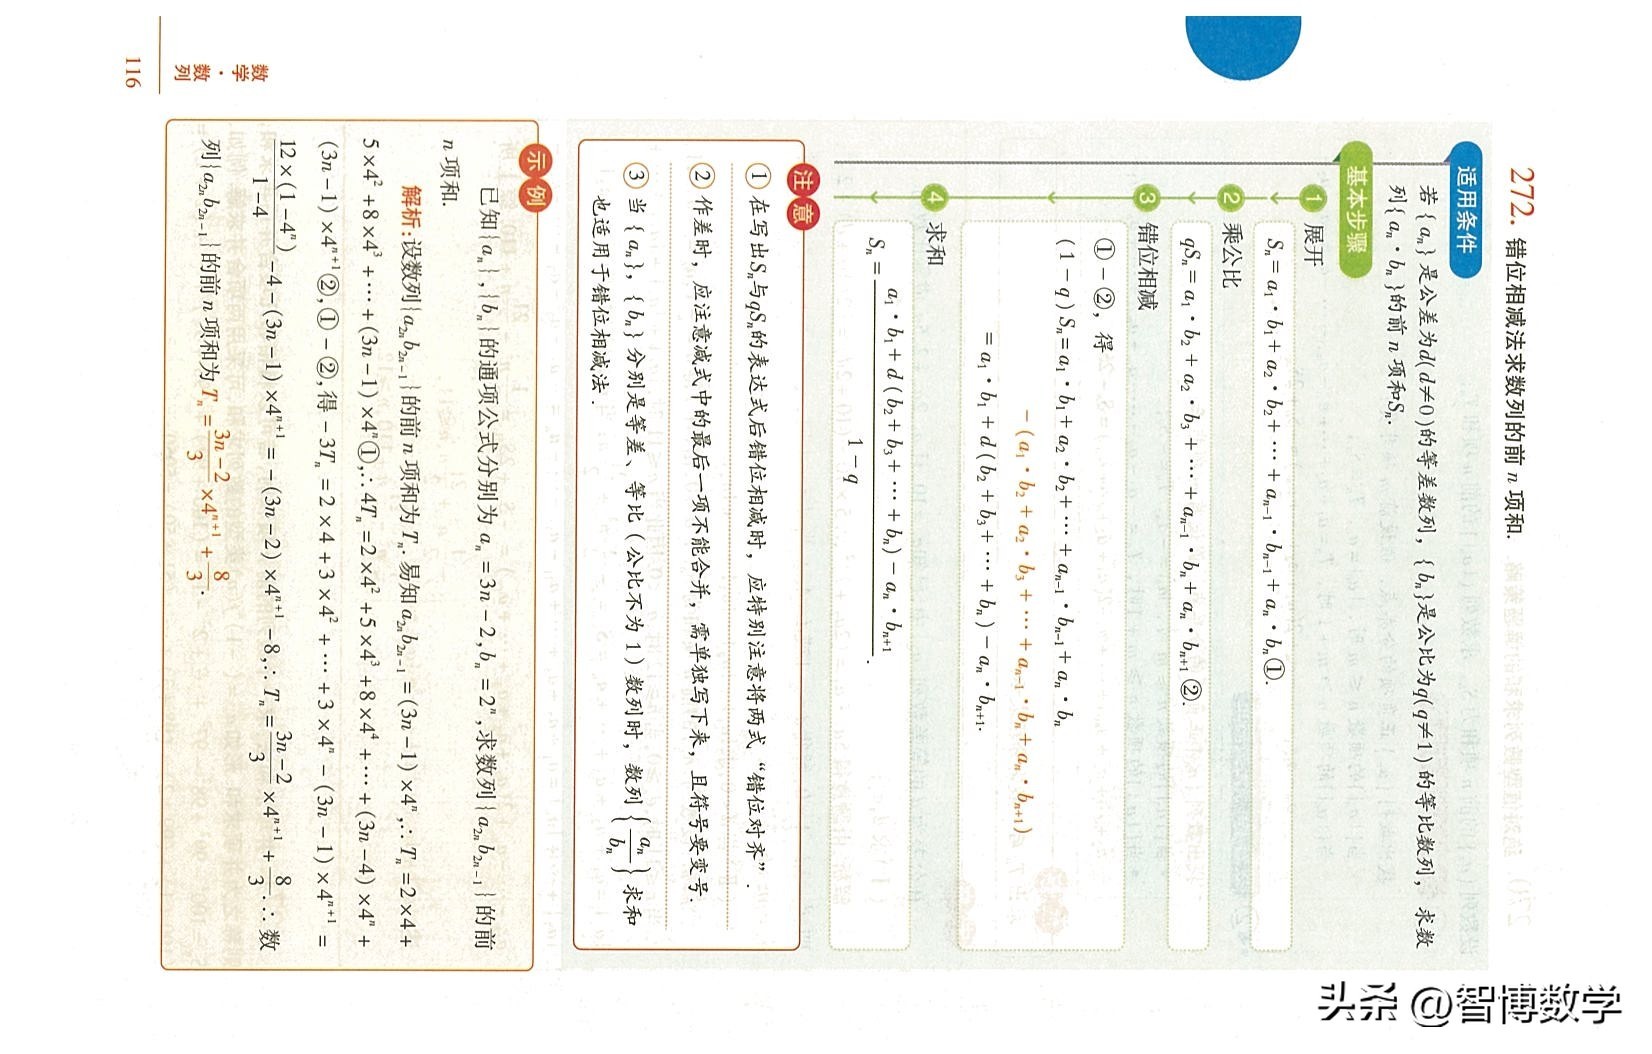 272. 错位相减法求数列的前 n 项和.
适用条件
若{aₙ}是公差为d(d≠0)的等差数列，{bₙ}是公比为q(q≠1)的等比数列，求数
列{aₙ·bₙ}的前 n 项和Sₙ.
基本步骤
1 展开
Sₙ=a₁·b₁+a₂·b₂+⋯+aₙ₋₁·bₙ₋₁+aₙ·bₙ①.
2 乘公比
qSₙ=a₁·b₂+a₂·b₃+⋯+aₙ₋₁·bₙ+aₙ·bₙ₊₁②.
3 错位相减
①-②，得
(1-q)Sₙ=a₁·b₁+a₂·b₂+⋯+aₙ₋₁·bₙ₋₁+aₙ·bₙ
-(a₁·b₂+a₂·b₃+⋯+aₙ₋₁·bₙ+aₙ·bₙ₊₁)
=a₁·b₁+d(b₂+b₃+⋯+bₙ)-aₙ·bₙ₊₁.
4 求和
Sₙ=\frac{a₁·b₁+d(b₂+b₃+⋯+bₙ)-aₙ·bₙ₊₁}{1-q}.
注意
①在写出Sₙ与qSₙ的表达式后错位相减时，应特别注意将两式“错位对齐”.
②作差时，应注意减式中的最后一项不能合并，需单独写下来，且符号要变号.
③当{aₙ}，{bₙ}分别是等差、等比(公比不为1)数列时，数列{\frac{aₙ}{bₙ}}求和
也适用于错位相减法.
示例
已知{aₙ},{bₙ}的通项公式分别为aₙ=3n-2,bₙ=2ⁿ,求数列{a₂ₙb₂ₙ₋₁}的前
n 项和.
解析:设数列{a₂ₙb₂ₙ₋₁}的前n项和为Tₙ.易知a₂ₙb₂ₙ₋₁=(3n-1)×4ⁿ,∴Tₙ=2×4+
5×4²+8×4³+⋯+(3n-1)×4ⁿ①,∴4Tₙ=2×4²+5×4³+8×4⁴+⋯+(3n-4)×4ⁿ+
(3n-1)×4ⁿ⁺¹②,①-②,得-3Tₙ=2×4+3×4²+⋯+3×4ⁿ-(3n-1)×4ⁿ⁺¹=
\frac{12×(1-4ⁿ)}{1-4}-4-(3n-1)×4ⁿ⁺¹=-(3n-2)×4ⁿ⁺¹-8,∴Tₙ=\frac{3n-2}{3}×4ⁿ⁺¹+\frac{8}{3}.∴数
列{a₂ₙb₂ₙ₋₁}的前n项和为Tₙ=\frac{3n-2}{3}×4ⁿ⁺¹+\frac{8}{3}.
数学·数列
116
头条 @智博数学